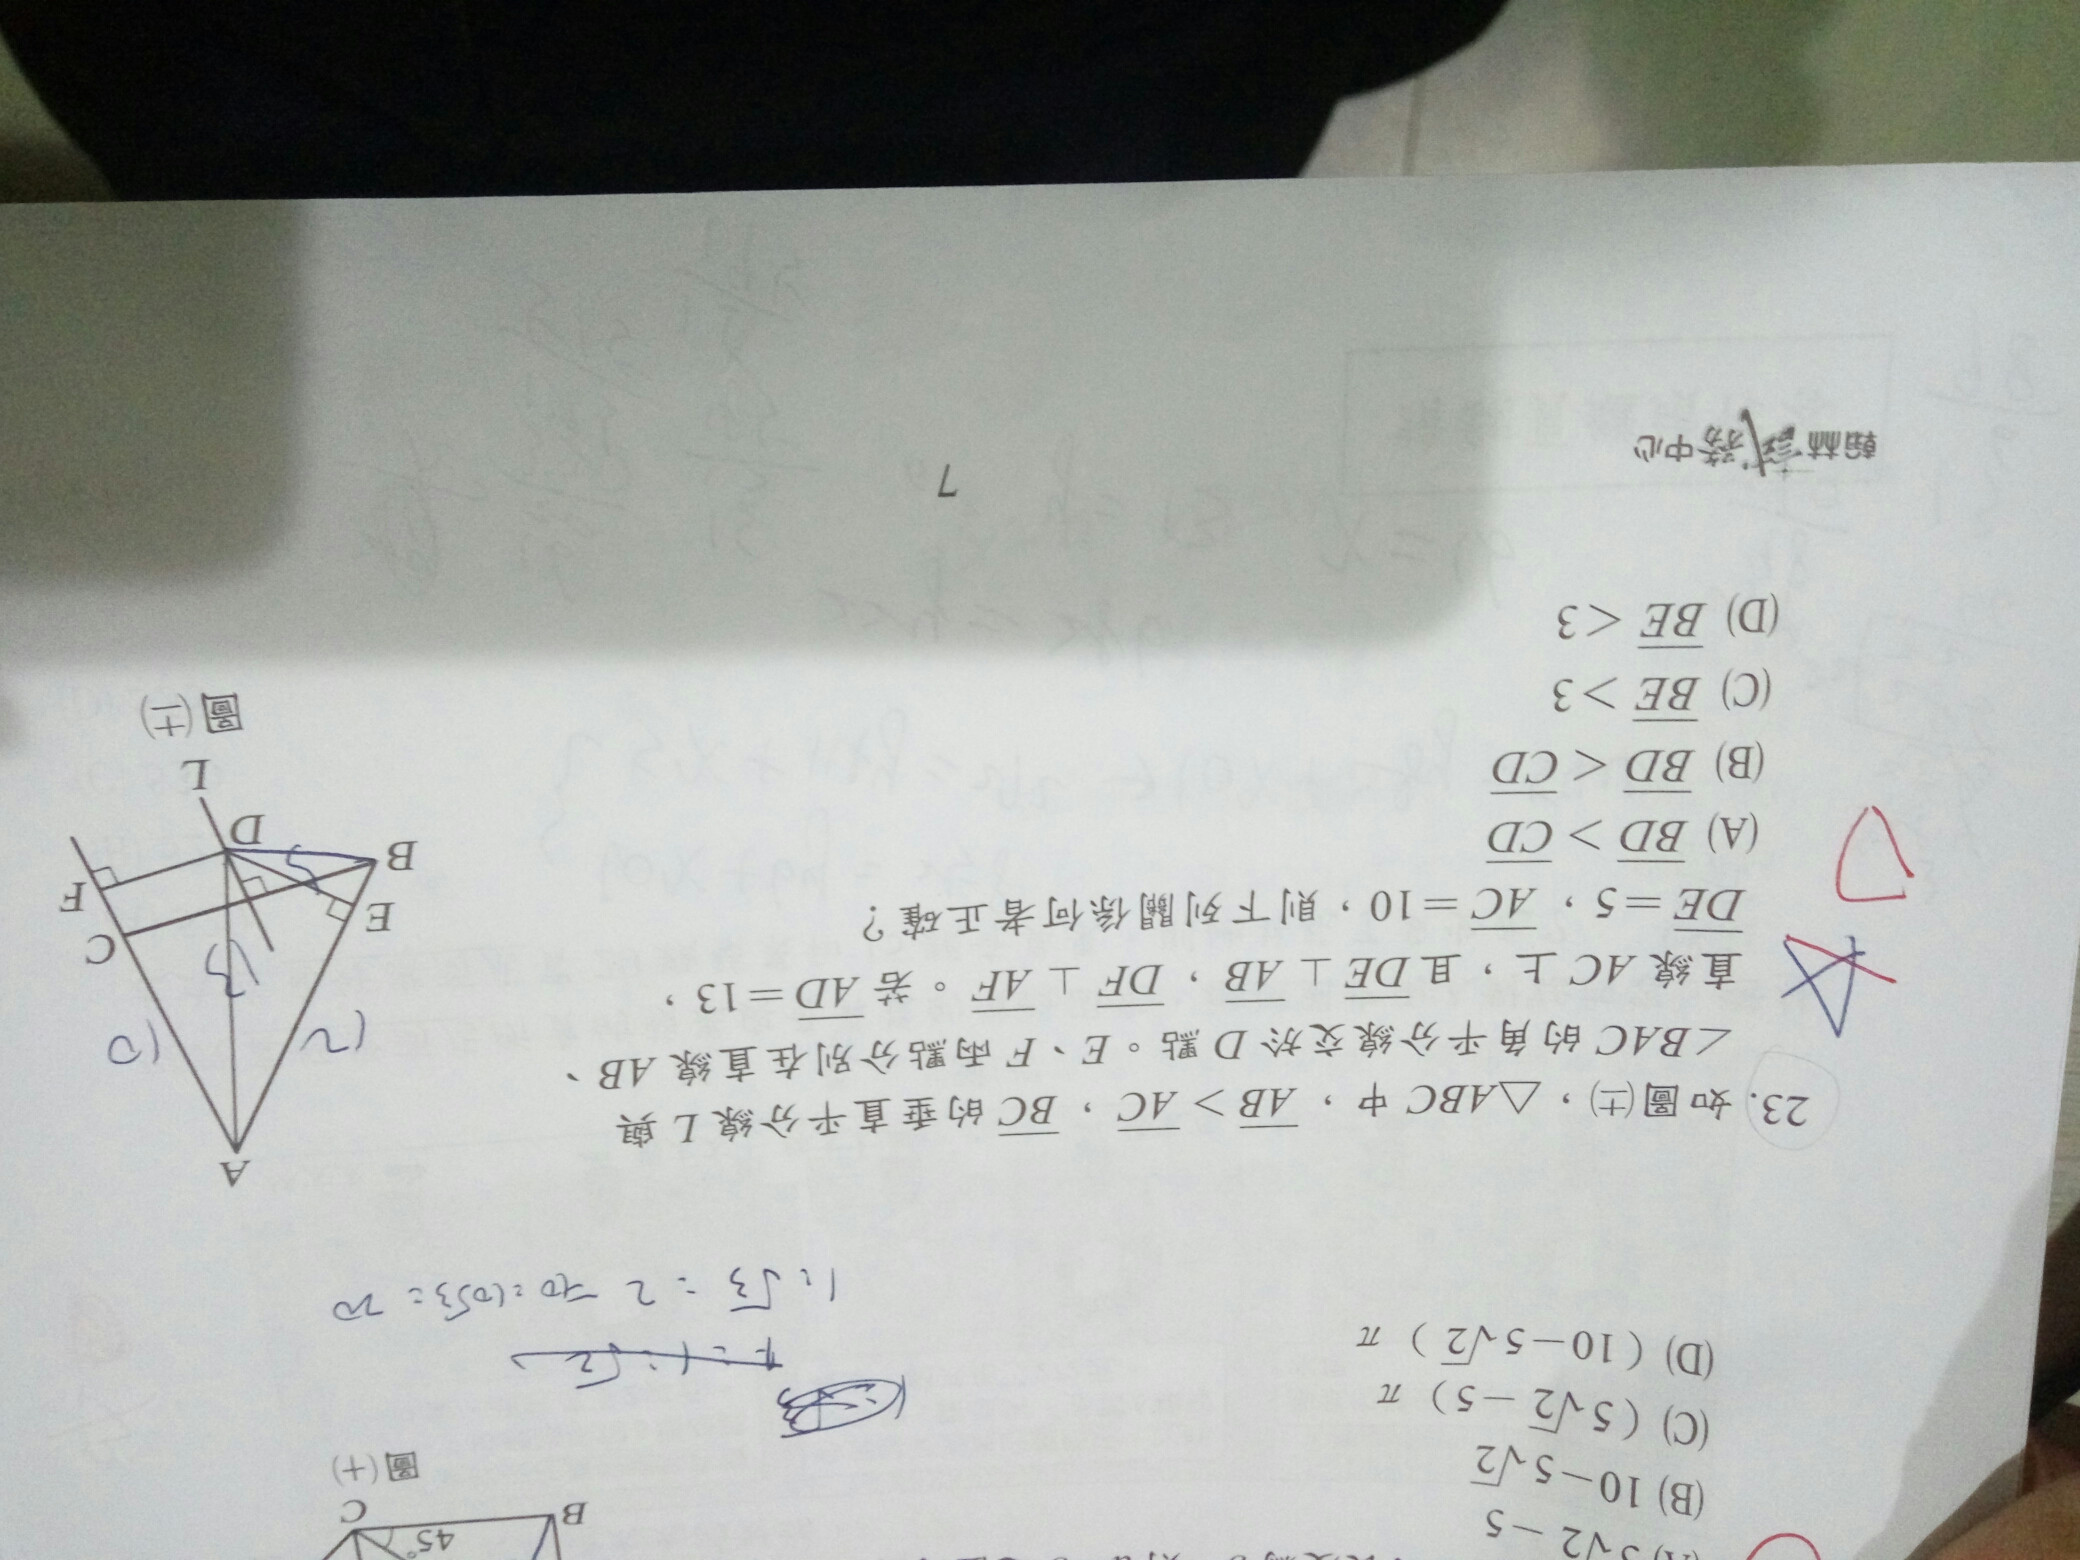 (A) 5√2 −5
(B) 10−5√2
(C)（5√2 −5）π
(D)（10−5√2）π
45°
B
C
圖(十)
1:√3 = 2
23. 如圖(十一)，△ABC中，AB＞AC，BC的垂直平分線L與
∠BAC的角平分線交於D點。E、F兩點分別在直線AB、
直線AC上，且DE⊥AB，DF⊥AF。若AD=13，
DE=5，AC=10，則下列關係何者正確？
(A) BD＞CD
(B) BD＜CD
(C) BE＞3
(D) BE＜3
A
12
10
13
E
5
C
B
F
D
L
圖(十一)
翰林試務中心
7